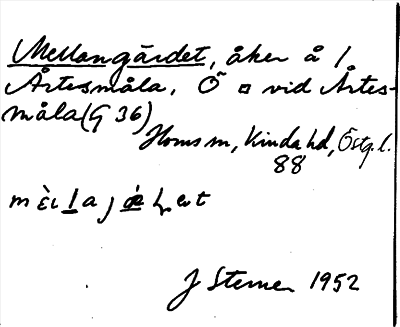 Mellangärdet, åker å 1
Årtesmåla, Ö ¤ vid Årtes-
måla (G 36)
Horns sn, Kinda hd, Östg. l.
88
J Sterner 1952